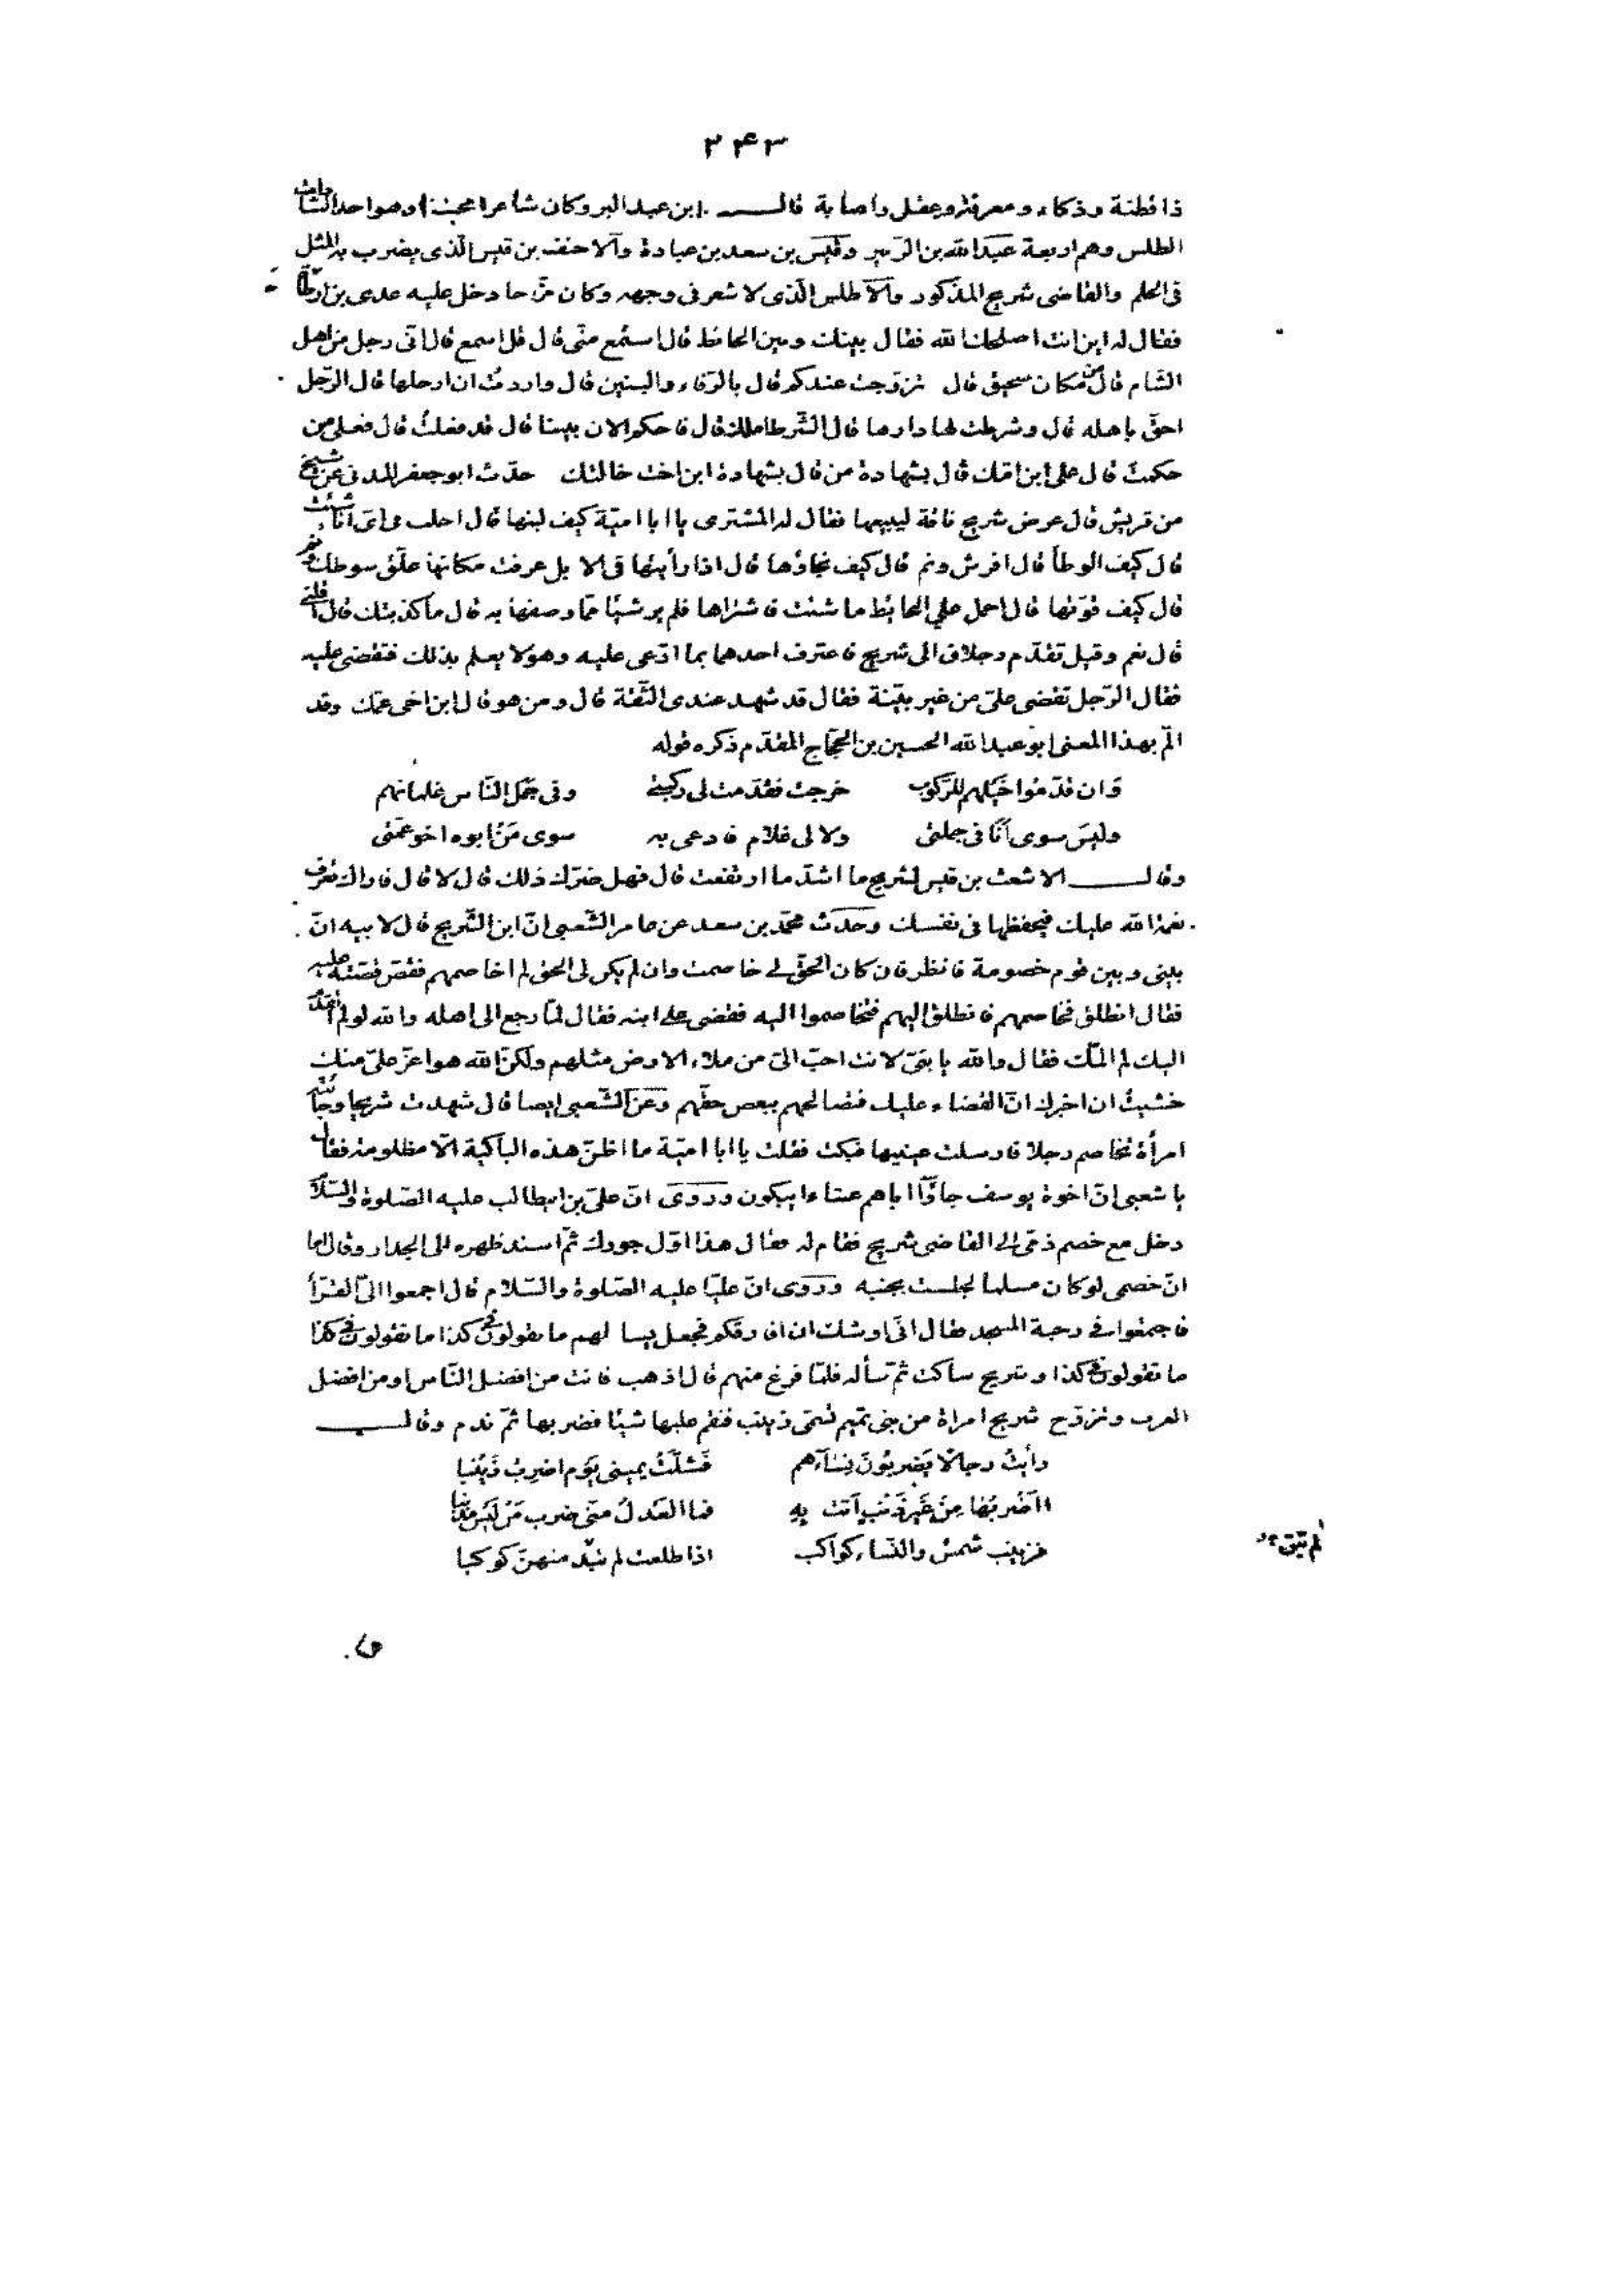 ٢٤٣
ذا فطنة وذكاء ومعرفة وعقل واصابة قال ابن عبد البر وكان شاعرا محسنا وهو احد السادات
الطلس وهم اربعة عبد الله بن الزبير وقيس بن سعد بن عبادة والاحنف بن قيس الذى يضرب به المثل
فى الحلم والقاضى شريح المذكور والاطلس الذى لا شعر فى وجهه وكان مزّاحا دخل عليه عدى بن ارطاة
فقال له اين انت اصلحك الله فقال بينك وبين الحائط قال استمع منّى قال قل اسمع قال انّى رجل من اهل
الشام قال من مكان سحيق قال تزوّجت عندكم قال بالرّفاء والبنين قال واردت ان ارحلها قال الرّجل
احقّ باهله قال وشرطت لها دارها قال الشّرط املك قال فاحكم الان بيننا قال قد فعلت قال فعلى من
حكمت قال على ابن امّك قال بشهادة من قال بشهادة ابن اخت خالتك حدّث ابو جعفر المدنى عن شيخ
من قريش قال عرض شريح ناقة ليبيعها فقال له المشترى يا ابا اميّة كيف لبنها قال احلب فى اىّ اناء شئت
قال كيف الوطأ قال افرش ونم قال كيف نجاؤها قال اذا رأيتها فى الابل عرفت مكانها علّق سوطك ونم
قال كيف قوّتها قال احمل على الحائط ما شئت فاشتراها فلم ير شيئا ممّا وصفها به قال ما كذبتك قال اقلنى
قال نعم وقيل تقدّم رجلان الى شريح فاعترف احدهما بما ادّعى عليه وهو لا يعلم بذلك فقضى عليه
فقال الرّجل تقضى علىّ من غير بيّنة فقال قد شهد عندى الثّقة قال ومن هو قال ابن اخى عمّك وقد
المّ بهذا المعنى ابو عبد الله الحسين بن الحجّاج المقدّم ذكره قوله
وان قدّموا خيلهم للرّكوب خرجت فقدّمت لى ركبتى وفى جمل النّاس غلمانهم
وليس سوى انا فى جملتى ولا لى غلام فادعى به سوى من ابوه اخو عمّتى
وقال الاشعث بن قيس لشريح ما اشدّ ما ارتفعت قال فهل ضرّك ذلك قال لا قال فاراك تعرف
نعمة الله عليك فيحفظها فى نفسك وحدّث محمّد بن سعد عن عامر الشّعبى انّ ابن الشّريح قال لابيه انّ
بينى وبين قوم خصومة فانظر فان كان الحقّ لى خاصمت وان لم يكن لى الحق لم اخاصمهم فقصّ قصّته عليه
فقال انطلق فخاصمهم فانطلق اليهم فتخاصموا اليه فقضى على ابنه فقال لمّا رجع الى اهله والله لو لم اتقدّم
اليك لم المك فقال والله يا بنىّ لانت احبّ الىّ من ملاء الارض مثلهم ولكن الله هو اعزّ علىّ منك
خشيت ان اخبرك انّ القضاء عليك فتصالحهم ببعض حقّهم وعن الشّعبى ايضا قال شهدت شريحا وجائته
امرأة تخاصم رجلا فارسلت عينيها فبكت فقلت يا ابا اميّة ما اظنّ هذه الباكية الّا مظلومة فقال
يا شعبى انّ اخوة يوسف جاؤا اباهم عشاء يبكون وروى انّ علىّ بن ابيطالب عليه الصّلوة والسّلام
دخل مع خصم ذمّى الى القاضى شريح فقام له فقال هذا اوّل جورك ثمّ اسند ظهره الى الجدار وقال اما
انّ خصمى لو كان مسلما لجلست بجنبه وروى انّ عليّا عليه الصّلوة والسّلام قال اجمعوا الىّ القرّاء
فاجتمعوا فى رحبة المسجد فقال انّى اوشك ان افارقكم فجعل يسالهم ما تقولون فى كذا ما تقولون فى كذا
ما تقولون فى كذا وشريح ساكت ثمّ سأله فلمّا فرغ منهم قال اذهب فانت من افضل النّاس او من افضل
العرب وتزوّج شريح امراة من بنى تميم تسمّى زينب فنقم عليها شيئا فضربها ثمّ ندم وقال
رأيت رجالا يضربون نساءهم فشلّت يمينى يوم اضرب زينبا
أأضربها من غير ذنب اتت به فما العدل منّى ضرب من ليس مذنبا
فزينب شمس والنّساء كواكب اذا طلعت لم تبد منهنّ كوكبا